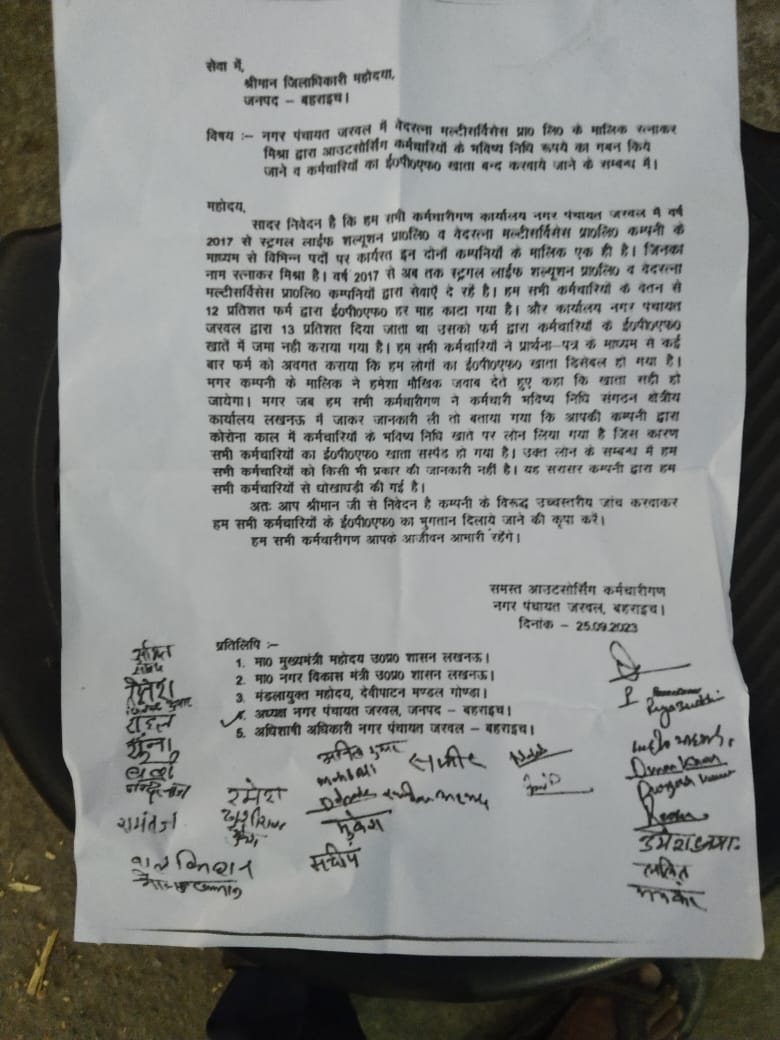 सेवा में,
श्रीमान जिलाधिकारी महोदया,
जनपद – बहराइच।
विषय :– नगर पंचायत जरवल में वेदरत्ना मल्टीसर्विसेस प्रा० लि० के मालिक रत्नाकर
मिश्रा द्वारा आउटसोर्सिंग कर्मचारियों के भविष्य निधि रूपये का गबन किये
जाने व कर्मचारियों का ई०पी०एफ० खाता बन्द करवाये जाने के सम्बन्ध में।
महोदय,
सादर निवेदन है कि हम सभी कर्मचारीगण कार्यालय नगर पंचायत जरवल में वर्ष
2017 से स्ट्रगल लाईफ शल्यूशन प्रा०लि० व वेदरत्ना मल्टीसर्विसेस प्रा०लि० कम्पनी के
माध्यम से विभिन्न पदों पर कार्यरत इन दोनों कम्पनियों के मालिक एक ही है। जिनका
नाम रत्नाकर मिश्रा है। वर्ष 2017 से अब तक स्ट्रगल लाईफ शल्यूशन प्रा०लि० व वेदरत्ना
मल्टीसर्विसेस प्रा०लि० कम्पनियों द्वारा सेवाएँ दे रहे है। हम सभी कर्मचारियों के वेतन से
12 प्रतिशत फर्म द्वारा ई०पी०एफ० हर माह काटा गया है। और कार्यालय नगर पंचायत
जरवल द्वारा 13 प्रतिशत दिया जाता था उसको फर्म द्वारा कर्मचारियों के ई०पी०एफ०
खाते में जमा नही कराया गया है। हम सभी कर्मचारियों ने प्रार्थना–पत्र के माध्यम से कई
बार फर्म को अवगत कराया कि हम लोगों का ई०पी०एफ० खाता डिसेबल हो गया है।
मगर कम्पनी के मालिक ने हमेशा मौखिक जवाब देते हुए कहा कि खाता सही हो
जायेगा। मगर जब हम सभी कर्मचारीगण ने कर्मचारी भविष्य निधि संगठन क्षेत्रीय
कार्यालय लखनऊ में जाकर जानकारी ली तो बताया गया कि आपकी कम्पनी द्वारा
कोरोना काल में कर्मचारियों के भविष्य निधि खाते पर लोन लिया गया है जिस कारण
सभी कर्मचारियों का ई०पी०एफ० खाता सस्पेंड हो गया है। उक्त लोन के सम्बन्ध में हम
सभी कर्मचारियों को किसी भी प्रकार की जानकारी नहीं है। यह सरासर कम्पनी द्वारा हम
सभी कर्मचारियों से धोखाधड़ी की गई है।
अतः आप श्रीमान जी से निवेदन है कम्पनी के विरूद्ध उच्चस्तरीय जांच करवाकर
हम सभी कर्मचारियों के ई०पी०एफ० का भुगतान दिलाये जाने की कृपा करें।
हम सभी कर्मचारीगण आपके आजीवन आभारी रहेंगे।
समस्त आउटसोर्सिंग कर्मचारीगण
नगर पंचायत जरवल, बहराइच।
दिनांक – 25.09.2023
प्रतिलिपि :–
1. मा० मुख्यमंत्री महोदय उ०प्र० शासन लखनऊ।
2. मा० नगर विकास मंत्री उ०प्र० शासन लखनऊ।
3. मंडलायुक्त महोदय, देवीपाटन मण्डल गोण्डा।
4. अध्यक्ष नगर पंचायत जरवल, जनपद – बहराइच।
5. अधिशाषी अधिकारी नगर पंचायत जरवल – बहराइच।
रमेश
मुकेश
संदीप
ललित